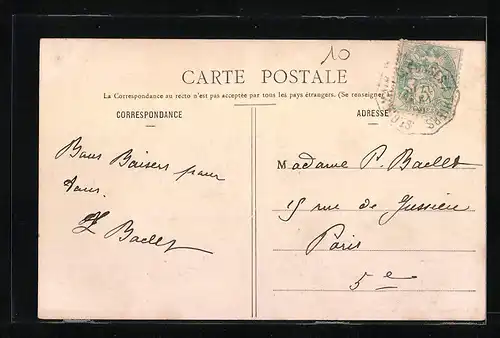 10
CARTE POSTALE
La Correspondance au recto n'est pas acceptée par tous les pays étrangers. (Se renseigner
CORRESPONDANCE
ADRESSE
Bons Baisers pour
tous.
Baellet
Madame P. Baellet
15 rue de Jussieu
Paris
5e